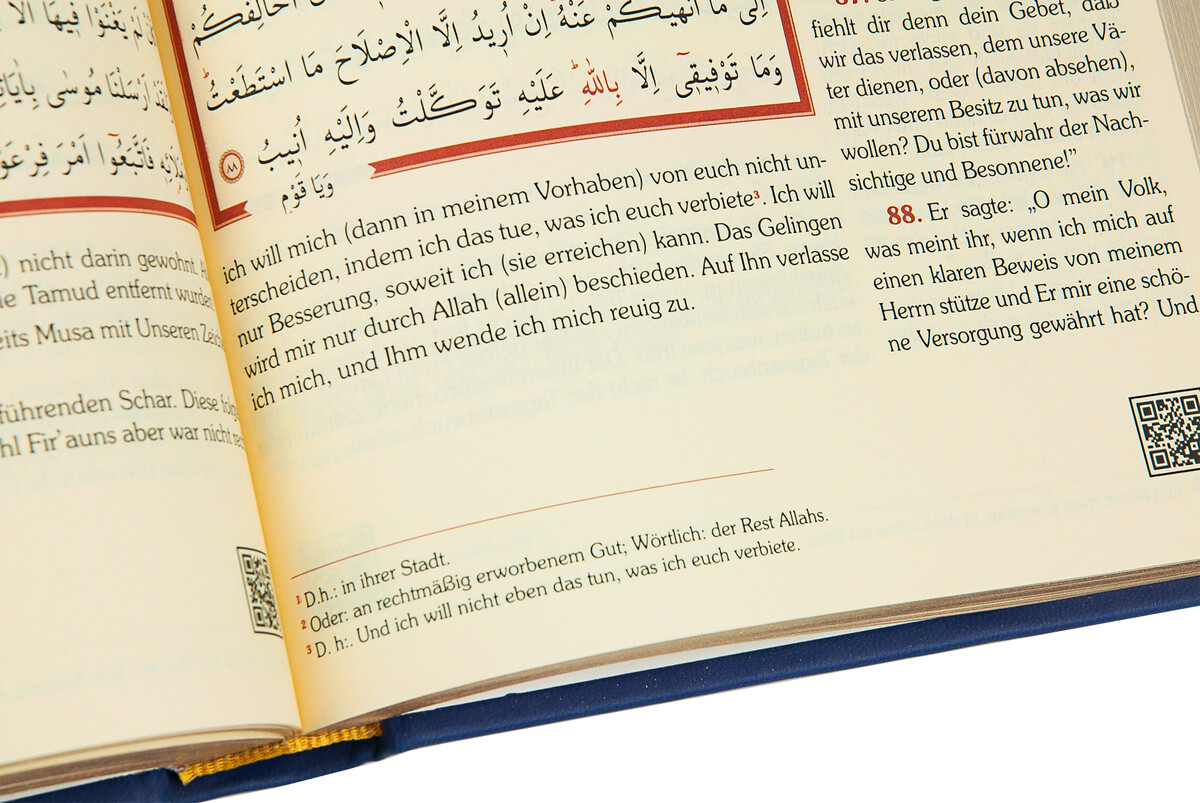 لَمْ يَغْنَوْا فٖيهَا
اَرْسَلْنَا مُوسٰى بِاٰيَاتِنَا
فَاتَّبَعُٓوا اَمْرَ فِرْعَوْنَ
nicht darin gewohnt.
Tamud entfernt wurden
Musa mit Unseren
führenden Schar. Diese
Fir’auns aber war nicht
اُخَالِفَكُمْ
اِلٰى مَٓا اَنْهٰيكُمْ عَنْهُ اِنْ اُرٖيدُ اِلَّا الْاِصْلَاحَ مَا اسْتَطَعْتُ
وَمَا تَوْفٖيقٖٓي اِلَّا بِاللّٰهِ عَلَيْهِ تَوَكَّلْتُ وَاِلَيْهِ اُنٖيبُ ٨٨
وَيَا قَوْمِ
fiehlt dir denn dein Gebet, daß
wir das verlassen, dem unsere Vä-
ter dienen, oder (davon absehen),
mit unserem Besitz zu tun, was wir
wollen? Du bist fürwahr der Nach-
sichtige und Besonnene!”
88. Er sagte: „O mein Volk,
was meint ihr, wenn ich mich auf
einen klaren Beweis von meinem
Herrn stütze und Er mir eine schö-
ne Versorgung gewährt hat? Und
ich will mich (dann in meinem Vorhaben) von euch nicht un-
terscheiden, indem ich das tue, was ich euch verbiete³. Ich will
nur Besserung, soweit ich (sie erreichen) kann. Das Gelingen
wird mir nur durch Allah (allein) beschieden. Auf Ihn verlasse
ich mich, und Ihm wende ich mich reuig zu.
¹ D.h.: in ihrer Stadt.
² Oder: an rechtmäßig erworbenem Gut; Wörtlich: der Rest Allahs.
³ D. h:. Und ich will nicht eben das tun, was ich euch verbiete.